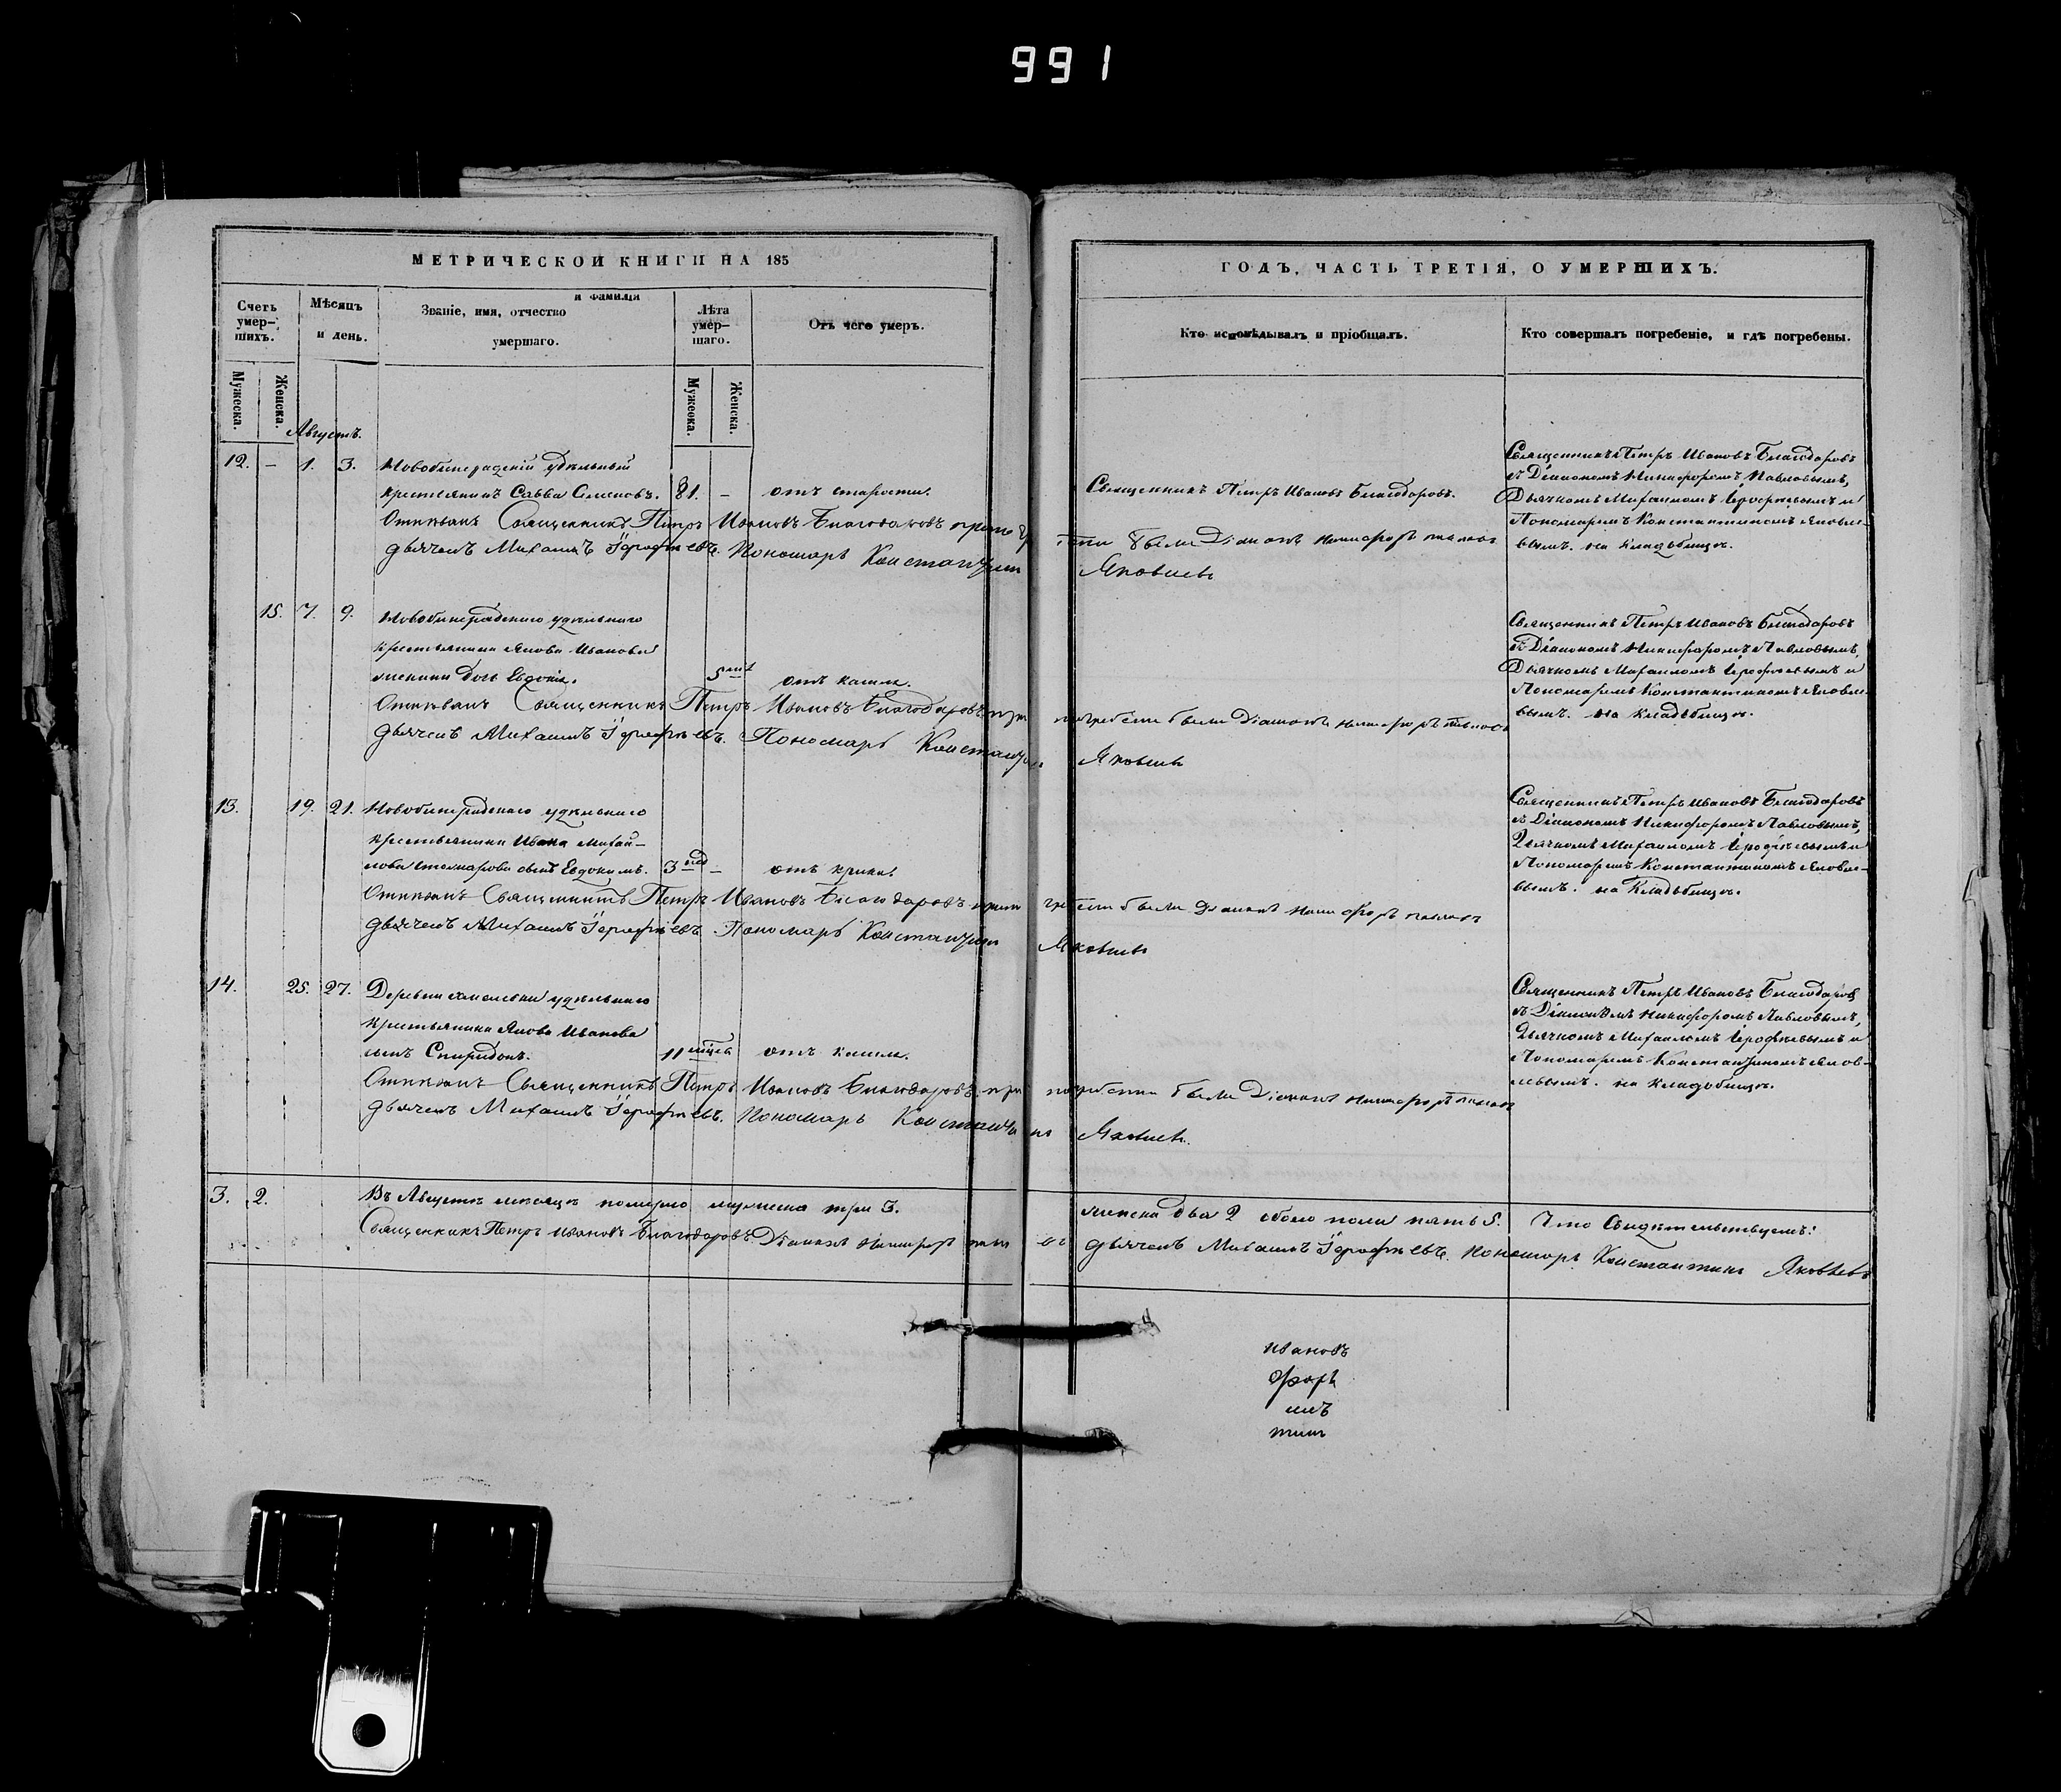 991
МЕТРИЧЕСКОЙ КНИГИ НА 185
Счетъ умер-шихъ.
Мѣсяцъ и день.
и фамилія
Званіе, имя, отчество
умершаго.
Лѣта умер-шаго.
Отъ чего умеръ.
Мужеска.
Женска.
Мужеска.
Женска.
Августъ.
12. – 1. 3.
удѣльный
крестьянинъ Савва Семеновъ. 81. – отъ старости.
Отпѣвалъ Священникъ Петръ Ивановъ Благодаровъ при
дьячекъ Михаилъ Іерофѣевъ. Пономарь Константин
15. 7. 9.
удѣльнаго
крестьянина Якова Иванова
дочь Евдокія. 5 отъ кашля.
Отпѣвалъ Священникъ Петръ Ивановъ Благодаровъ при
дьячекъ Михаилъ Іерофѣевъ. Пономарь Константин
13. 19. 21.
удѣльнаго
крестьянина Ивана Михай-
лова Столярова сынъ Евдокимъ. 3 нед – отъ крика.
Отпѣвалъ Священникъ Петръ Ивановъ Благодаровъ при
дьячекъ Михаилъ Іерофѣевъ. Пономарь Константин
14. 25. 27.
Деревни удѣльнаго
крестьянина Якова Иванова
сынъ Спиридонъ. 11 мцевъ отъ кашля.
Отпѣвалъ Священникъ Петръ Ивановъ Благодаровъ при
дьячекъ Михаилъ Іерофѣевъ. Пономарь Константи
3. 2.
Въ Августѣ мѣсяцѣ померло мужеска три 3.
Священникъ Петръ Ивановъ Благодаровъ. Діаконъ Никифоръ павл
ГОДЪ, ЧАСТЬ ТРЕТІЯ, О УМЕРШИХЪ.
Кто исповѣдывалъ и пріобщалъ.
Кто совершалъ погребеніе, и гдѣ погребены.
Священникъ Петръ Ивановъ Благодаровъ.
были Діаконъ Никифоръ павлов
Яковлевъ
Священникъ Петръ Ивановъ Благодаровъ
съ Діакономъ Никифоромъ Павловымъ,
Дьячкомъ Михаиломъ Іерофѣевымъ и
Пономаремъ Константиномъ Яковле-
вымъ. на кладбищѣ.
погребеніи были Діаконъ Никифоръ павлов
Яковлевъ
Священникъ Петръ Ивановъ Благодаровъ
съ Діакономъ Никифоромъ Павловымъ,
Дьячкомъ Михаиломъ Іерофѣевымъ и
Пономаремъ Константиномъ Яковле-
вымъ. на кладбищѣ.
гребеніи были Діаконъ Никифоръ павлов
Яковлевъ
Священникъ Петръ Ивановъ Благодаровъ
съ Діакономъ Никифоромъ Павловымъ,
Дьячкомъ Михаиломъ Іерофѣевымъ и
Пономаремъ Константиномъ Яковле-
вымъ. на Кладбищѣ.
погребеніи были Діаконъ Никифоръ павлов
Яковлев.
Священникъ Петръ Ивановъ Благодаров
съ Діакономъ Никифоромъ Павловымъ,
Дьячкомъ Михаиломъ Іерофѣевымъ и
Пономаремъ Константиномъ Яков-
левымъ. на кладбищѣ.
женска два 2 обоего пола пять 5. Что Свидѣтельствуемъ:
овъ дьячекъ Михаилъ Іерофѣевъ. Пономарь Константинъ Яковлевъ
Ивановъ
форъ
илъ
тин